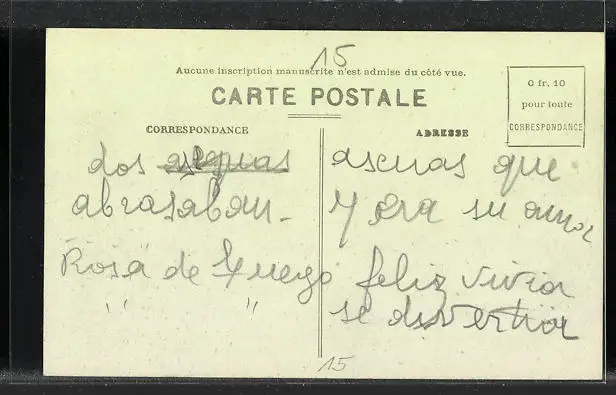 15
Aucune inscription manuscrite n'est admise du côté vue.
CARTE POSTALE
0 fr. 10
pour toute
CORRESPONDANCE
CORRESPONDANCE
ADRESSE
dos ascuas que
abrasaban - y era su amor
Rosa de Fuego feliz vivia
" " se divertia
15